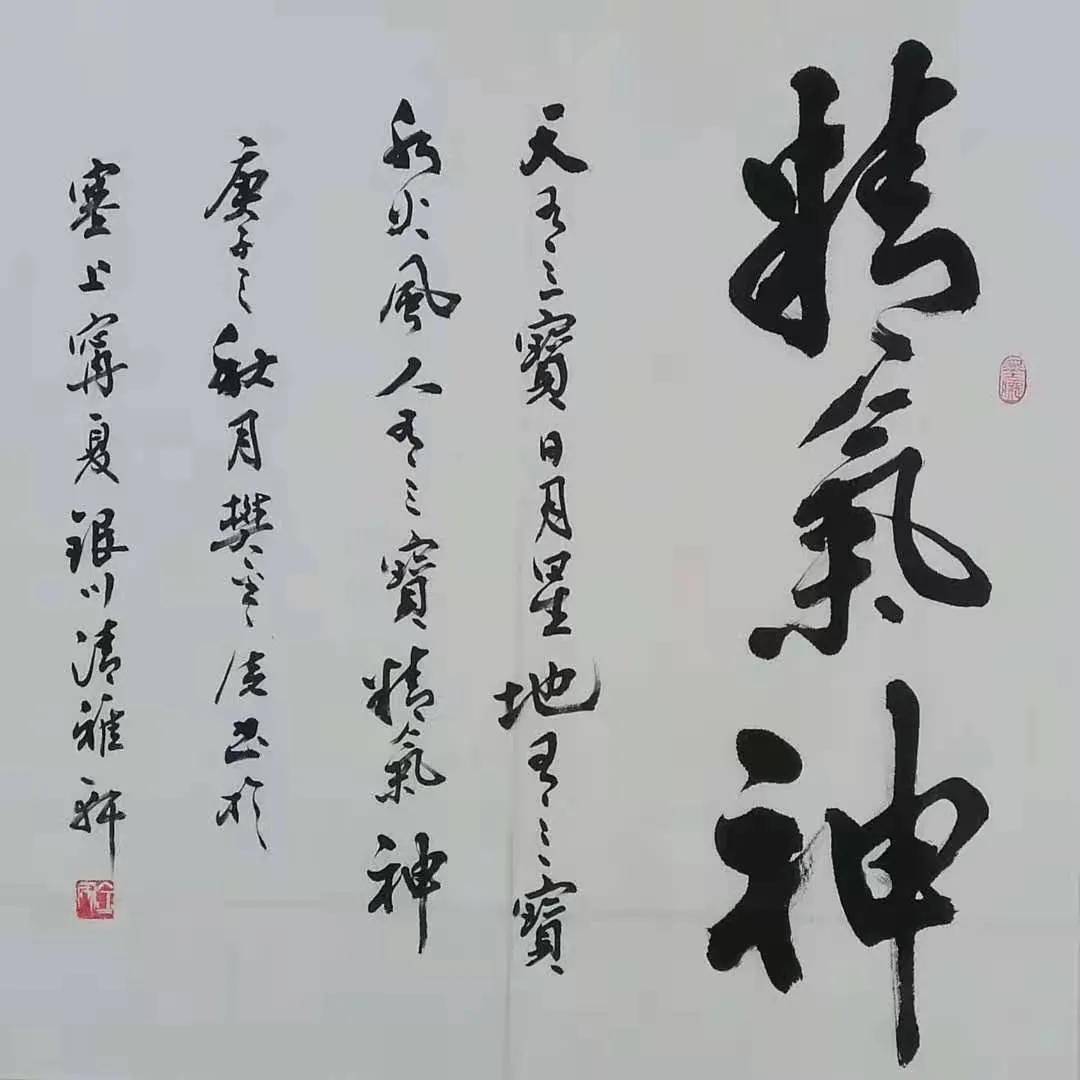 精氣神
天有三寶日月星地有三寶
水火風人有三寶精氣神
庚子之秋月樊书於
塞上寧夏銀川清雅軒